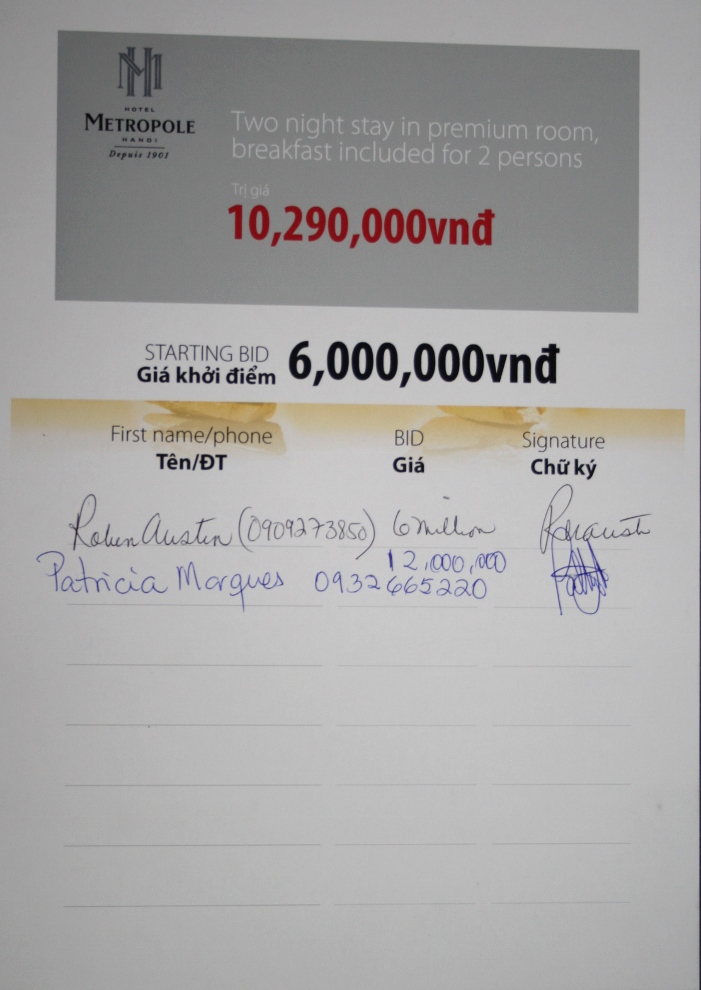 HOTEL
METROPOLE
HANOI
Depuis 1901
Two night stay in premium room,
breakfast included for 2 persons
Trị giá
10,290,000vnđ
STARTING BID
Giá khởi điểm
6,000,000vnđ
First name/phone BID Signature
Tên/ĐT Giá Chữ ký
Robin Austin (0909273850) 6 million
12,000,000
Patricia Marques 0932665220